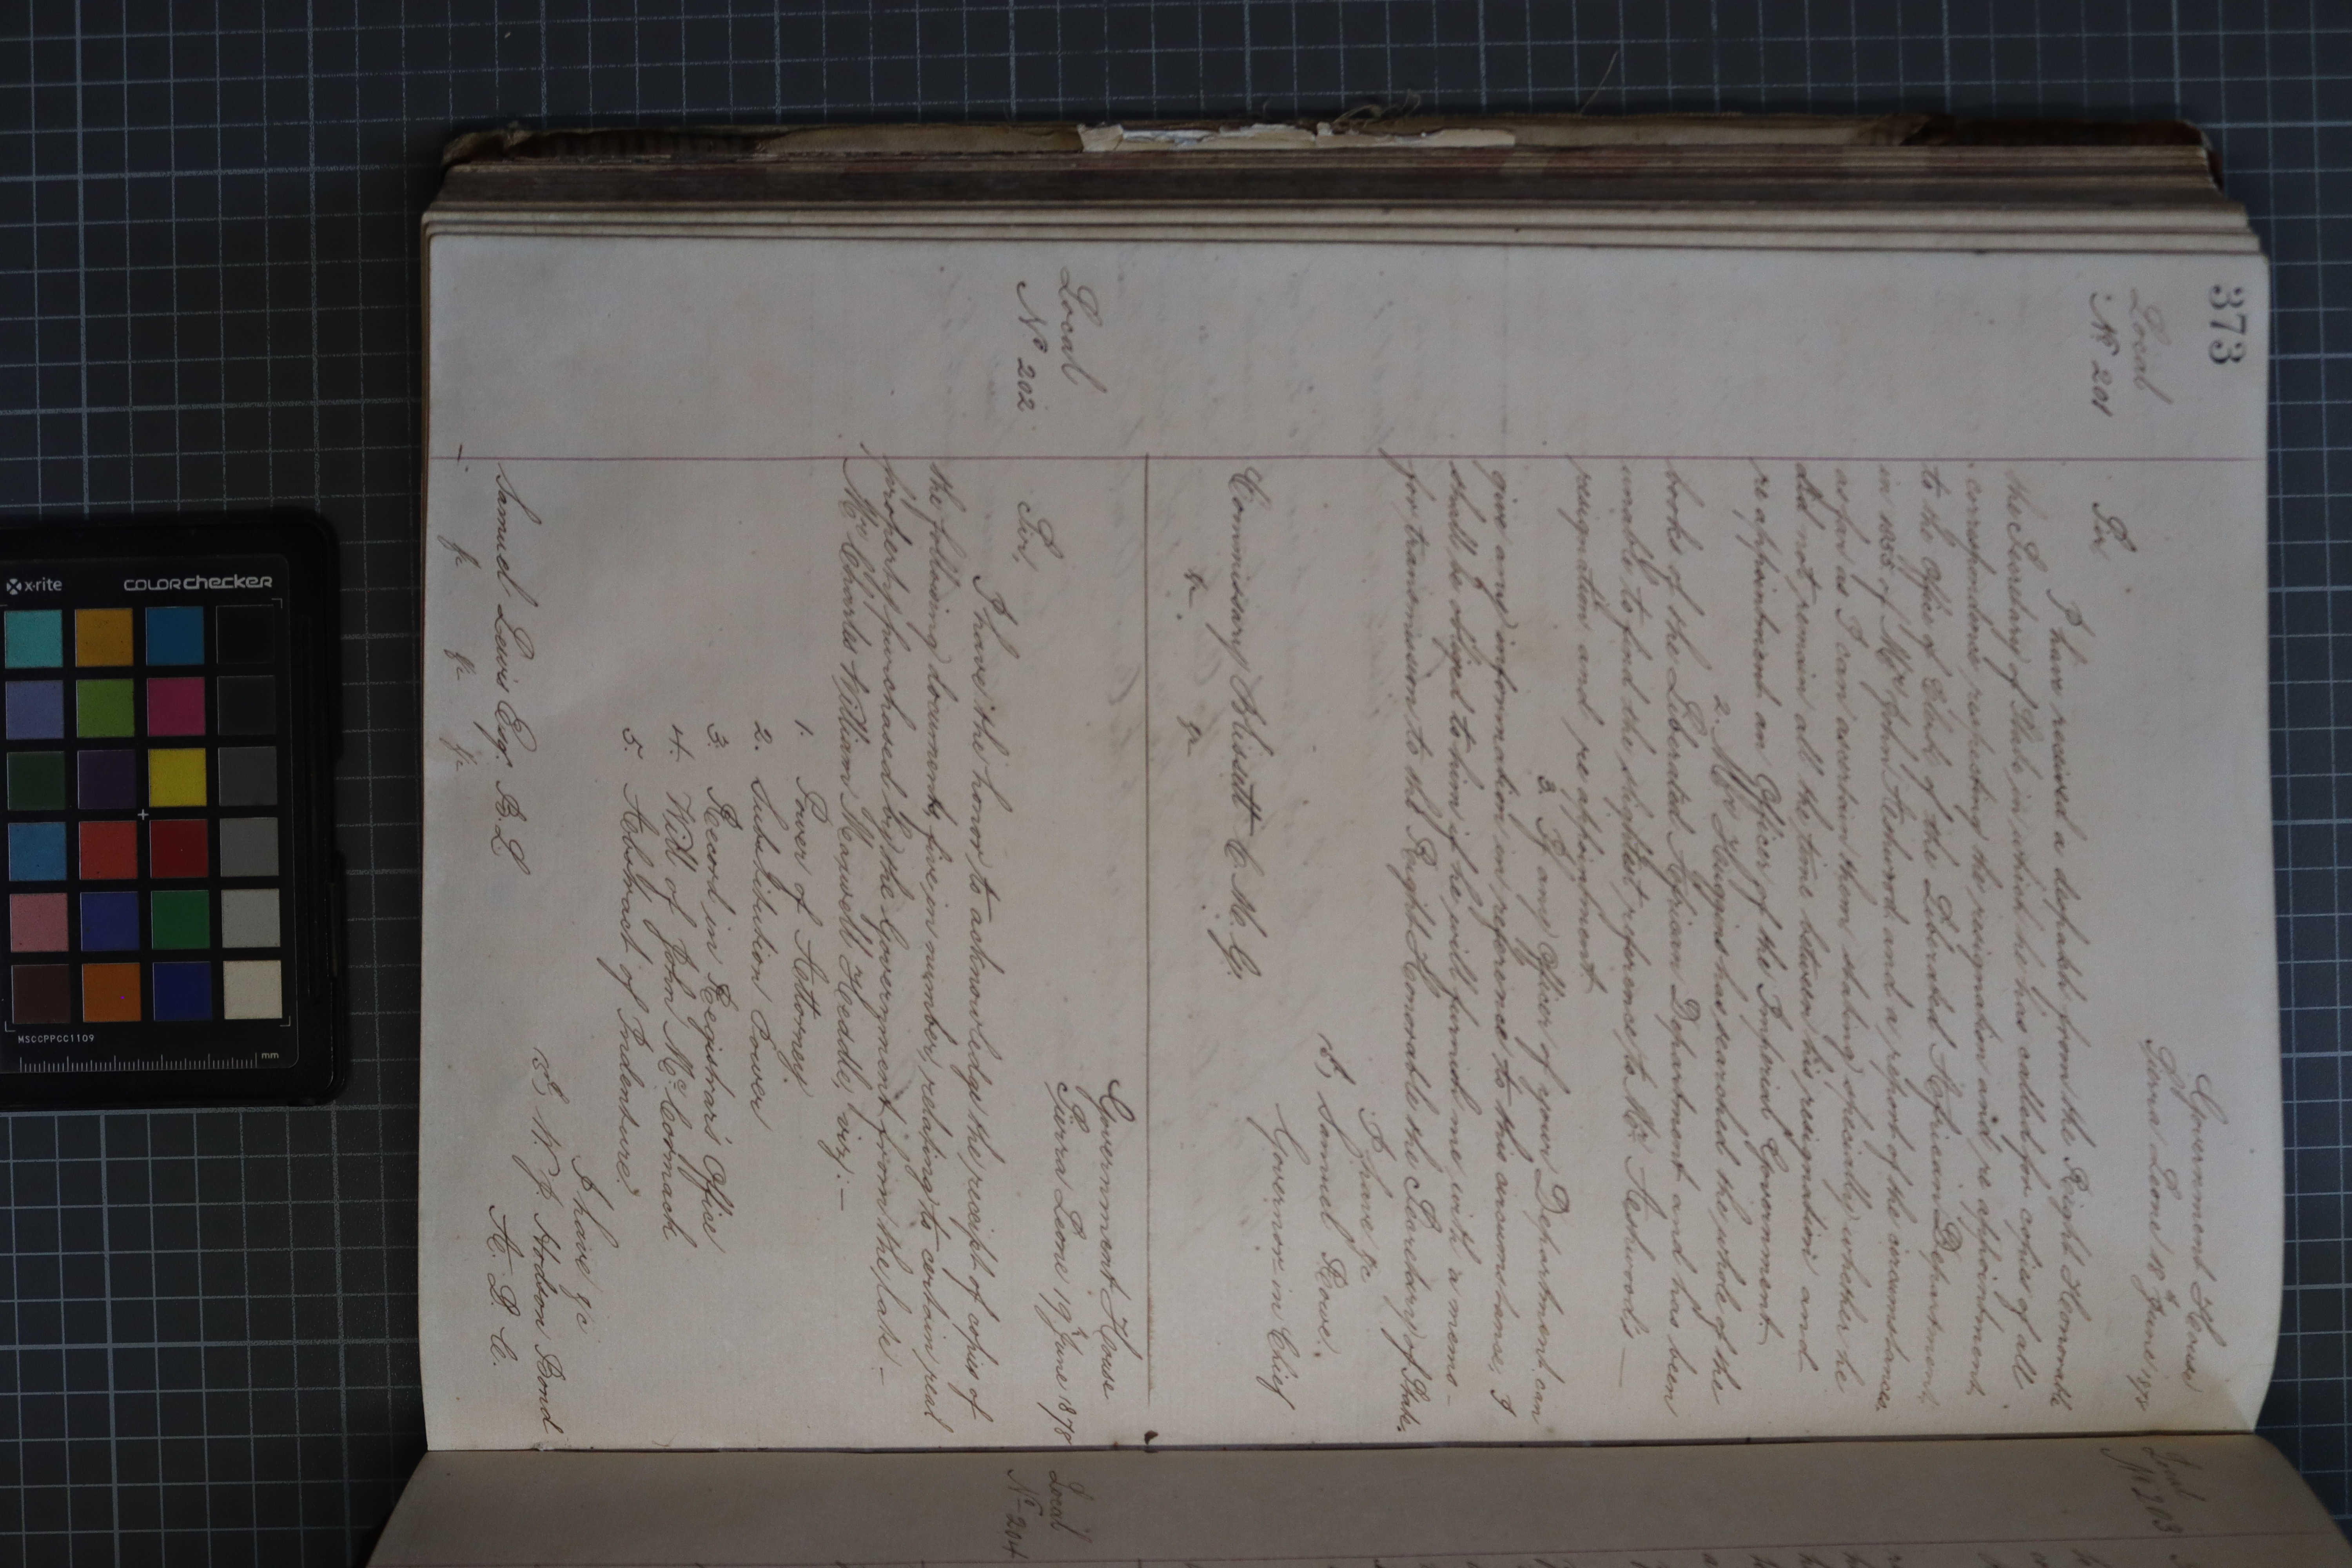 373
Local
No 201
Government House
Sierra Leone 18th June 1878
Sir,
I have received a despatch from the Right Honorable
the Secretary of State in which he has called for copies of all
correspondence respecting the resignation and re appointment,
to the office of Clerk of the Liberated African Department,
in 1855 of Mr John Ashwood and a report of the circumstances
as far as I can ascertain them stating specially whether he
did not remain all the time between his resignation and
re appointment an Officer of the Imperial Government
2. Mr Huggins has searched the whole of the
books of the Liberated African Department and has been
unable to find the slightest reference to Mr Ashwood's
resignation and re appointment.
3. If any Officer of your Department can
give any information in reference to this circumstance, I
shall be obliged to him if he will furnish me with a memo-
for transmission to the Right Honorable the Secretary of State.
I have &c
Samuel Rowe.
Governor in Chief
Commissary Blissett C. M. G.
&c. &c
Local
No 202
Government House
Sierra Leone 19th June 1878
Sir,
I have the honor to acknowledge the receipt of copies of
the following documents, five in number, relating to certain real
property purchased by the Government from the late -
Mr Charles William Maxwell Heddle, viz:-
1. Power of Attorney.
2. Substitution Power
3. Record in Registrar's Office
4. Will of John McCormack
5. Abstract of Indentures
I have &c
W. J. Hodson Bond
A. D. C.
Samuel Lewis Esq. B. L
&c &c &c
Local
No 203
Local
No 204
x-rite
COLORchecker
MSCCPPCC1109
mm